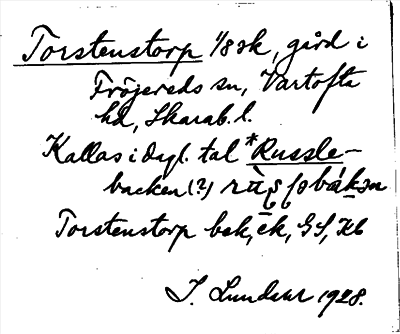 Torstenstorp 1/8 sk, gård i
Fröjereds sn, Vartofta
hd, Skarab. l.
Kallas i dagl. tal *Russle-
backen (?)
Torstenstorp bek, GS, Kb
J. Lundahl 1928.